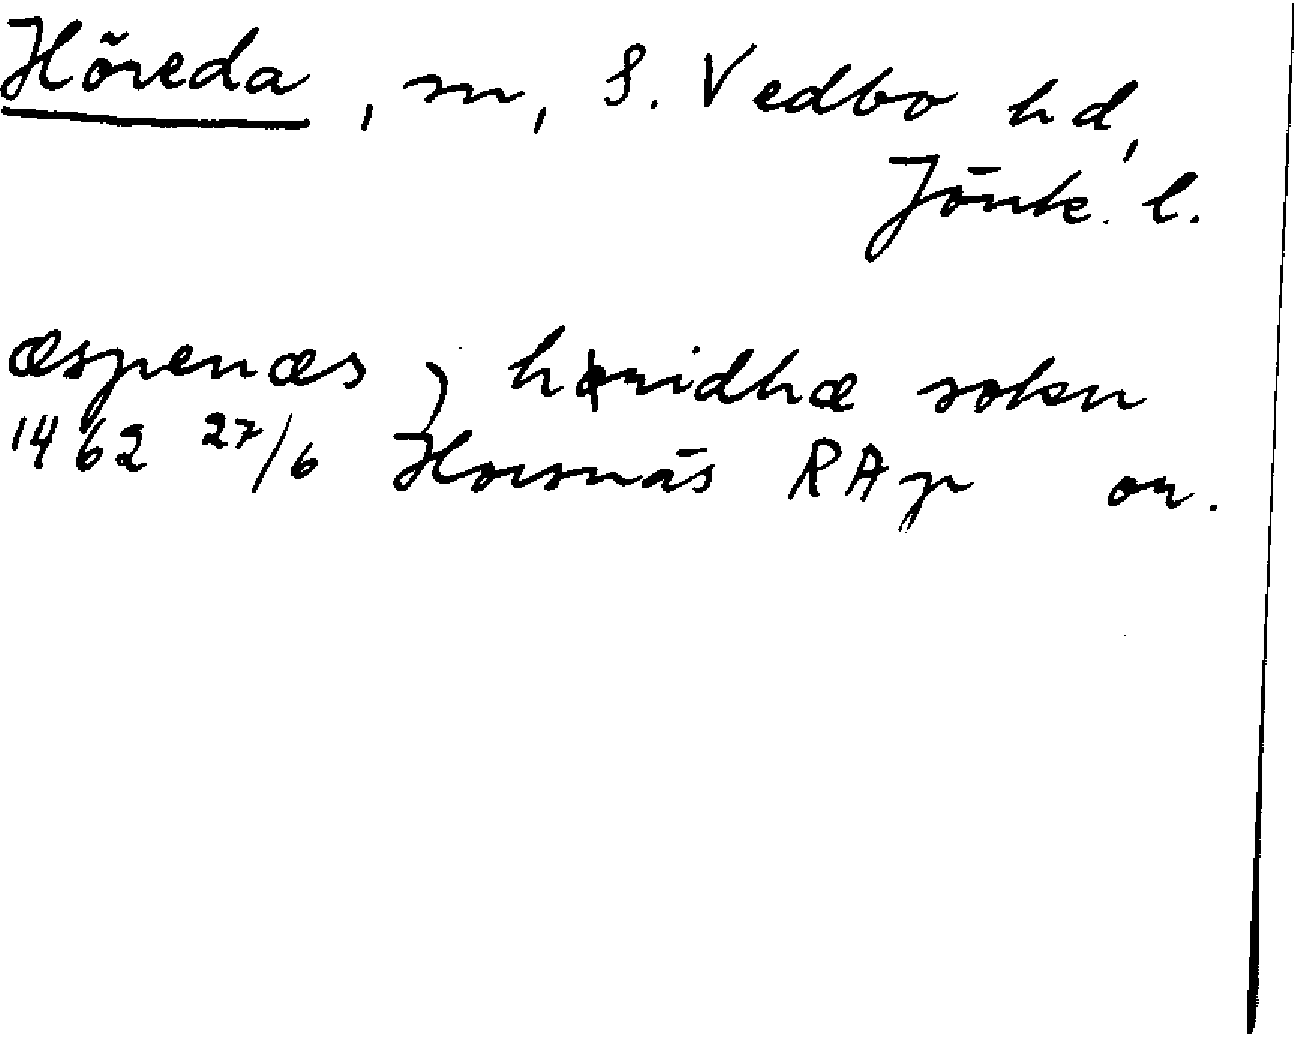 Höreda, sn, S. Vedbo hd,
Jönk. l.
æspenæs j høridhæ sokn
1462 27/6 Hornäs RAp or.